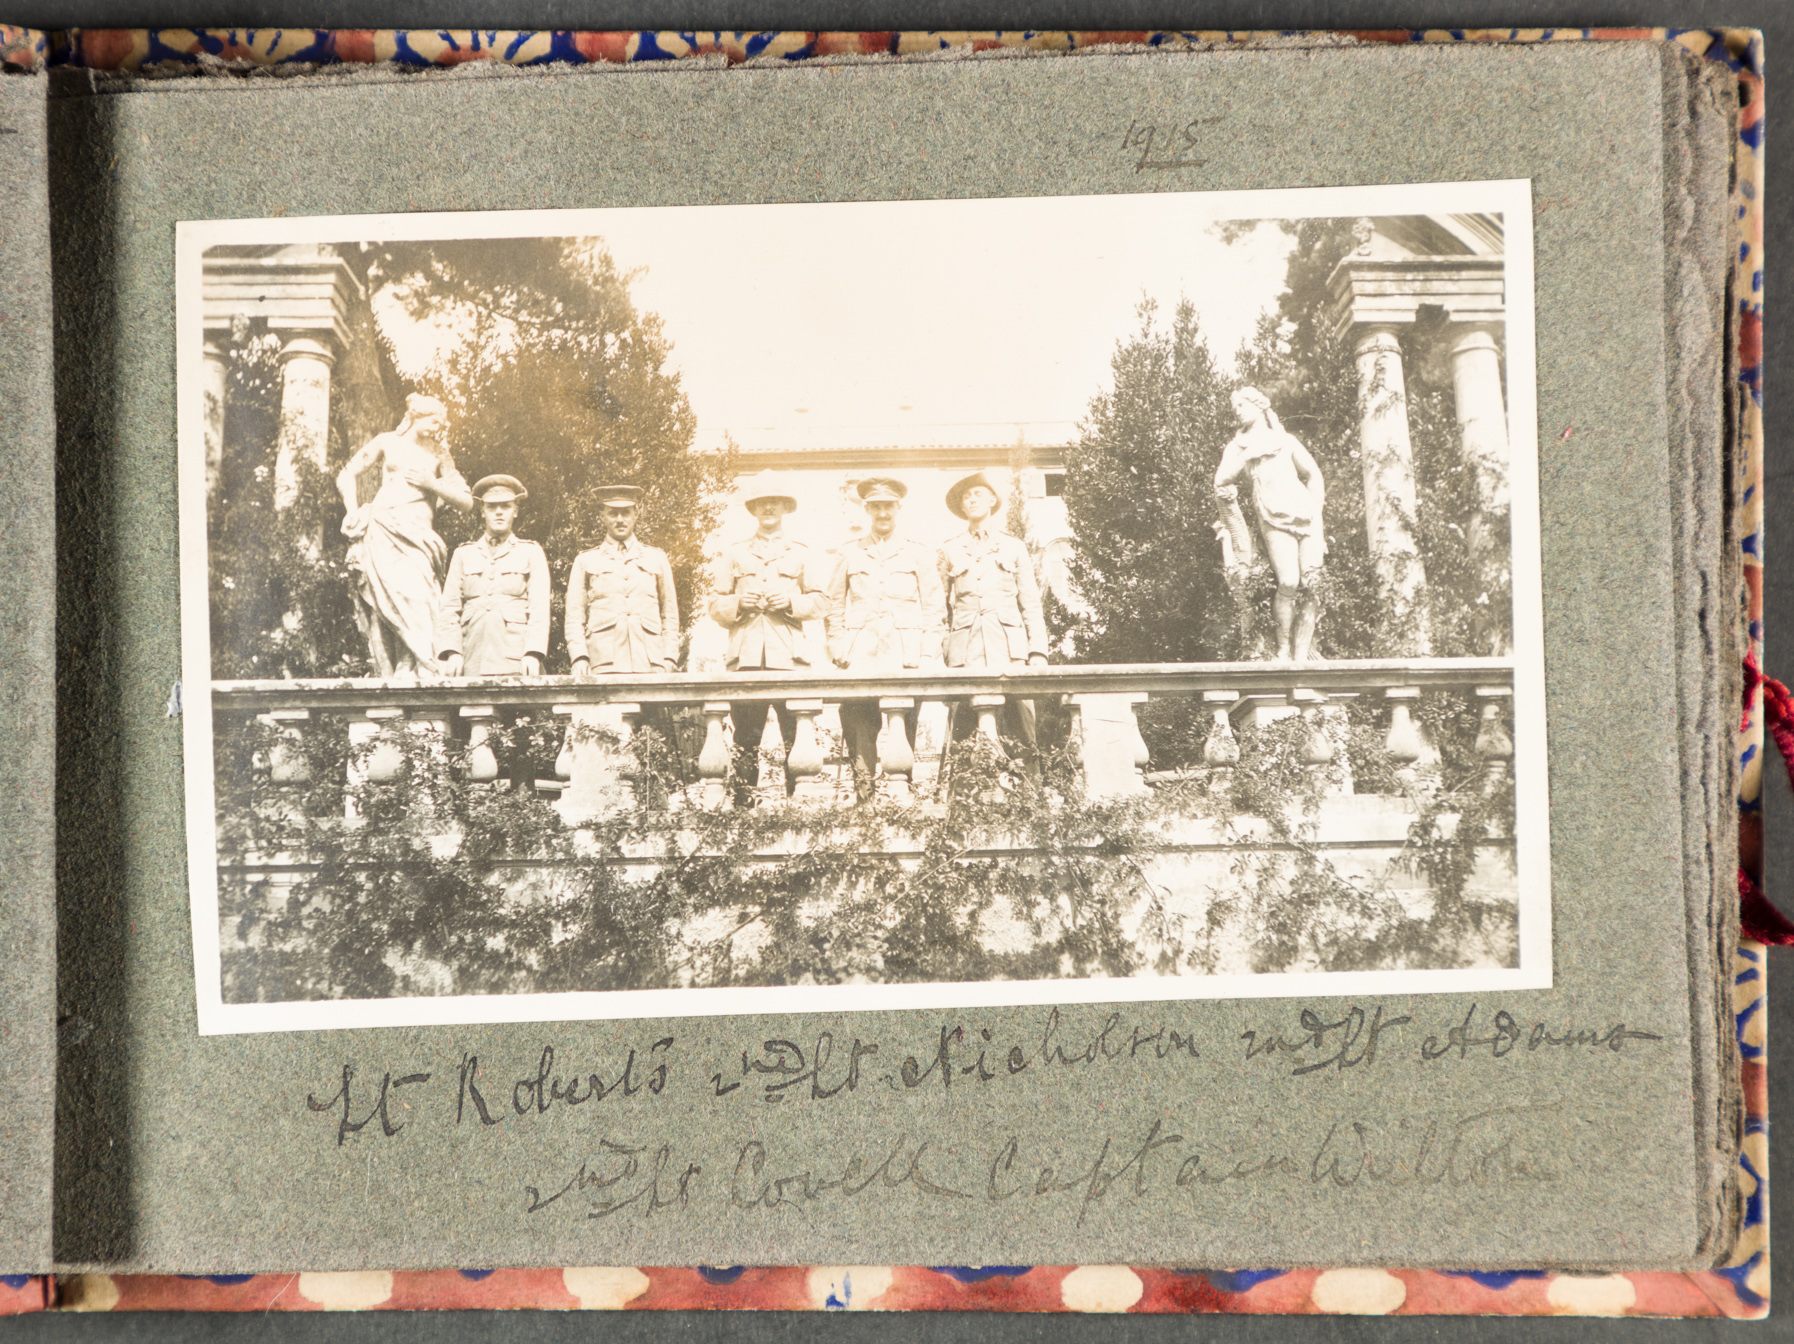 1915
Lt Roberts 2nd Lt Nicholson 2nd Lt Adams
2nd Lt Covell Captain Wilton